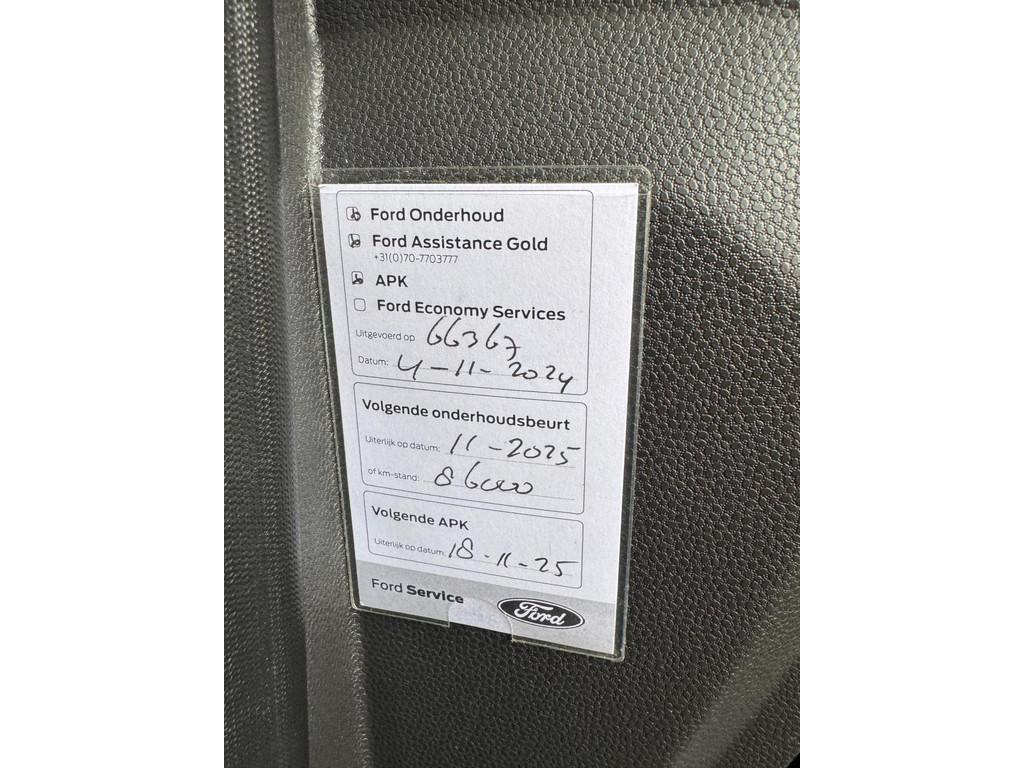 Ford Onderhoud
Ford Assistance Gold
+31(0)70-7703777
APK
Ford Economy Services
Uitgevoerd op 66367
Datum: 4-11-2024
Volgende onderhoudsbeurt
Uiterlijk op datum: 11-2025
of km-stand: 86000
Volgende APK
Uiterlijk op datum: 18-11-25
Ford Service
Ford